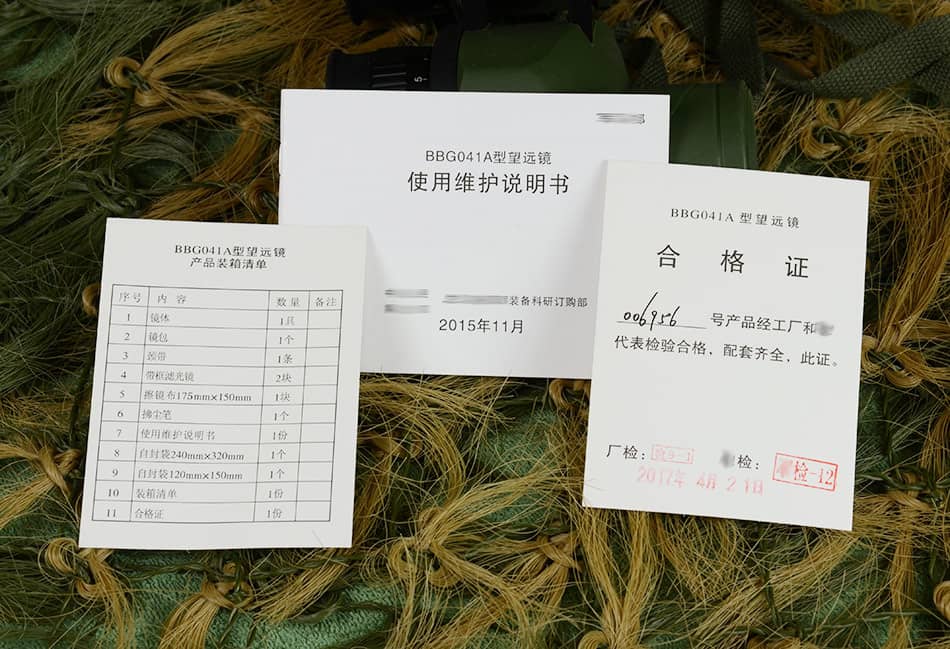 5
BBG041A型望远镜
使用维护说明书
装备科研订购部
2015年11月
BBG041A型望远镜
产品装箱清单
序号 内容 数量 备注
1 镜体 1具
2 镜包 1个
3 颈带 1条
4 带框滤光镜 2块
5 擦镜布175mm×150mm 1块
6 拂尘笔 1个
7 使用维护说明书 1份
8 自封袋240mm×320mm 1个
9 自封袋120mm×150mm 1个
10 装箱清单 1份
11 合格证 1份
BBG041A 型望远镜
合格证
006956 号产品经工厂和
代表检验合格，配套齐全，此证。
厂检： 检：
检-12
2017年 4月 21日